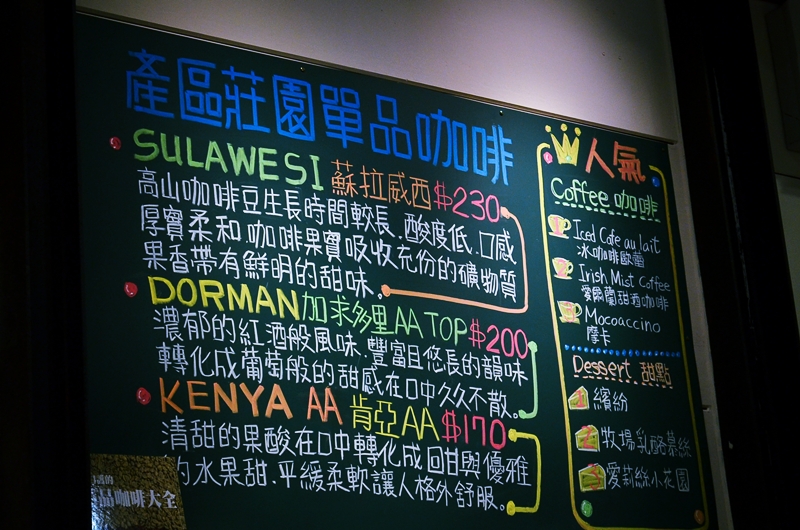 產區莊園單品咖啡
SULAWESI 蘇拉威西 $230
高山咖啡豆生長時間較長、酸度低、口感
厚實柔和、咖啡果實吸收充份的礦物質
果香帶有鮮明的甜味。
DORMAN 加求多里 AA TOP $200
濃郁的紅酒般風味、豐富且悠長的韻味
轉化成葡萄般的甜感在口中久久不散。
KENYA AA 肯亞AA $170
清甜的果酸在口中轉化成回甘與優雅
的水果甜、平緩柔軟讓人格外舒服。
人氣
Coffee 咖啡
Iced Cafe au lait
冰咖啡歐蕾
Irish Mist Coffee
愛爾蘭甜酒咖啡
Mocoaccino
摩卡
Dessert 甜點
1 繽紛
2 牧場乳酪慕絲
3 愛莉絲小花園
品咖啡大全